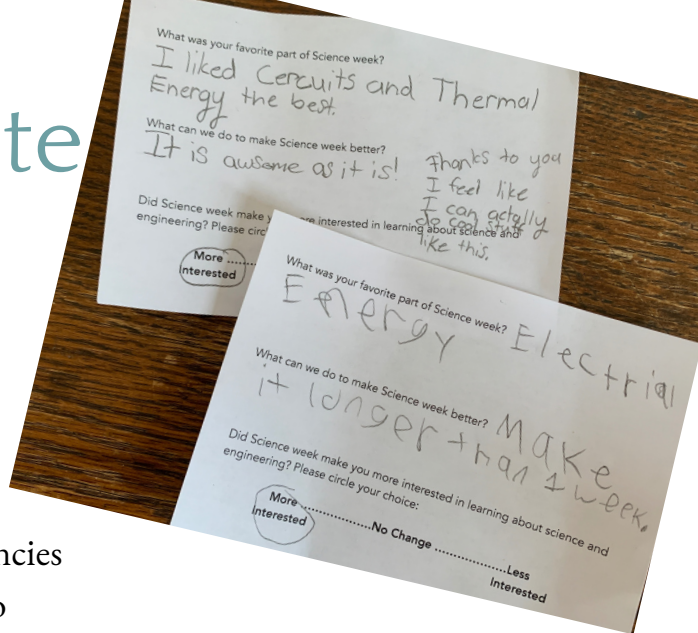 te
What was your favorite part of Science week?
I liked Cercuits and Thermal
Energy the best.
What can we do to make Science week better?
It is awsome as it is!
Thanks to you
I feel like
I can actally
do cool stuff
like this.
Did Science week make y re interested in learning about science and
engineering? Please circ
More ......
nterested
What was your favorite part of Science week? Electrial
Energy
What can we do to make Science week better? Make
it longer than 1 week.
Did Science week make you more interested in learning about science and
engineering? Please circle your choice:
More ..................No Change ..................Less
Interested Interested
ncies
o